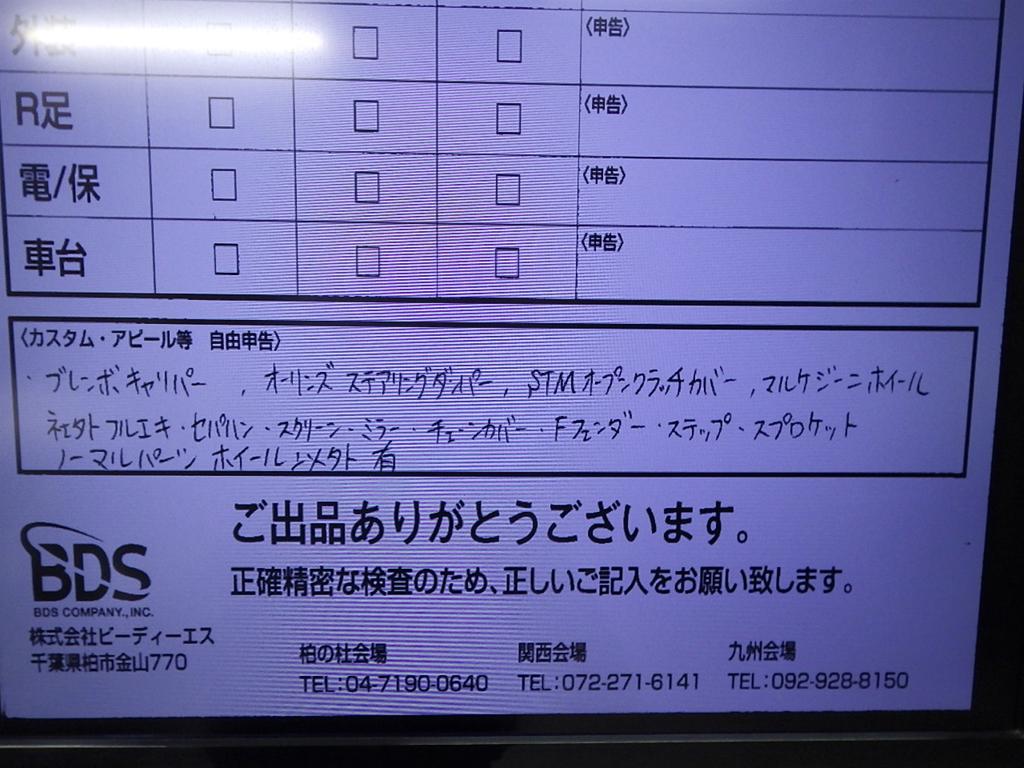 外装 □ □ □ 〈申告〉
R足 □ □ □ 〈申告〉
電/保 □ □ □ 〈申告〉
車台 □ □ □ 〈申告〉
〈カスタム・アピール等 自由申告〉
・ブレンボキャリパー , オーリンズ ステアリングダンパー , STMオープンクラッチカバー , マルケジーニホイール
フルエキ・セパハン・スクリーン・ミラー・チェーンカバー・Fフェンダー・ステップ・スプロケット
ノーマルパーツ ホイール 有
ご出品ありがとうございます。
正確精密な検査のため、正しいご記入をお願い致します。
BDS
BDS COMPANY.,INC.
株式会社ビーディーエス
千葉県柏市金山770
柏の杜会場 関西会場 九州会場
TEL:04-7190-0640 TEL:072-271-6141 TEL:092-928-8150